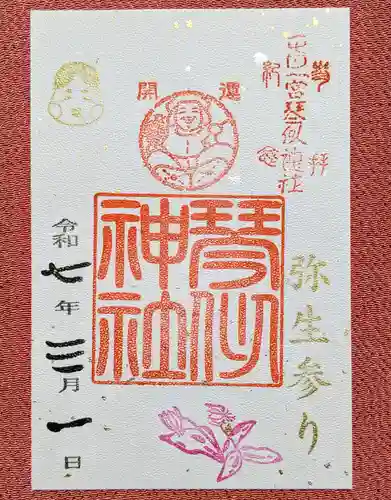 奉拝
一日一宮琴似神社
開運
弥生参り
琴似
神社
令和七年三月一日